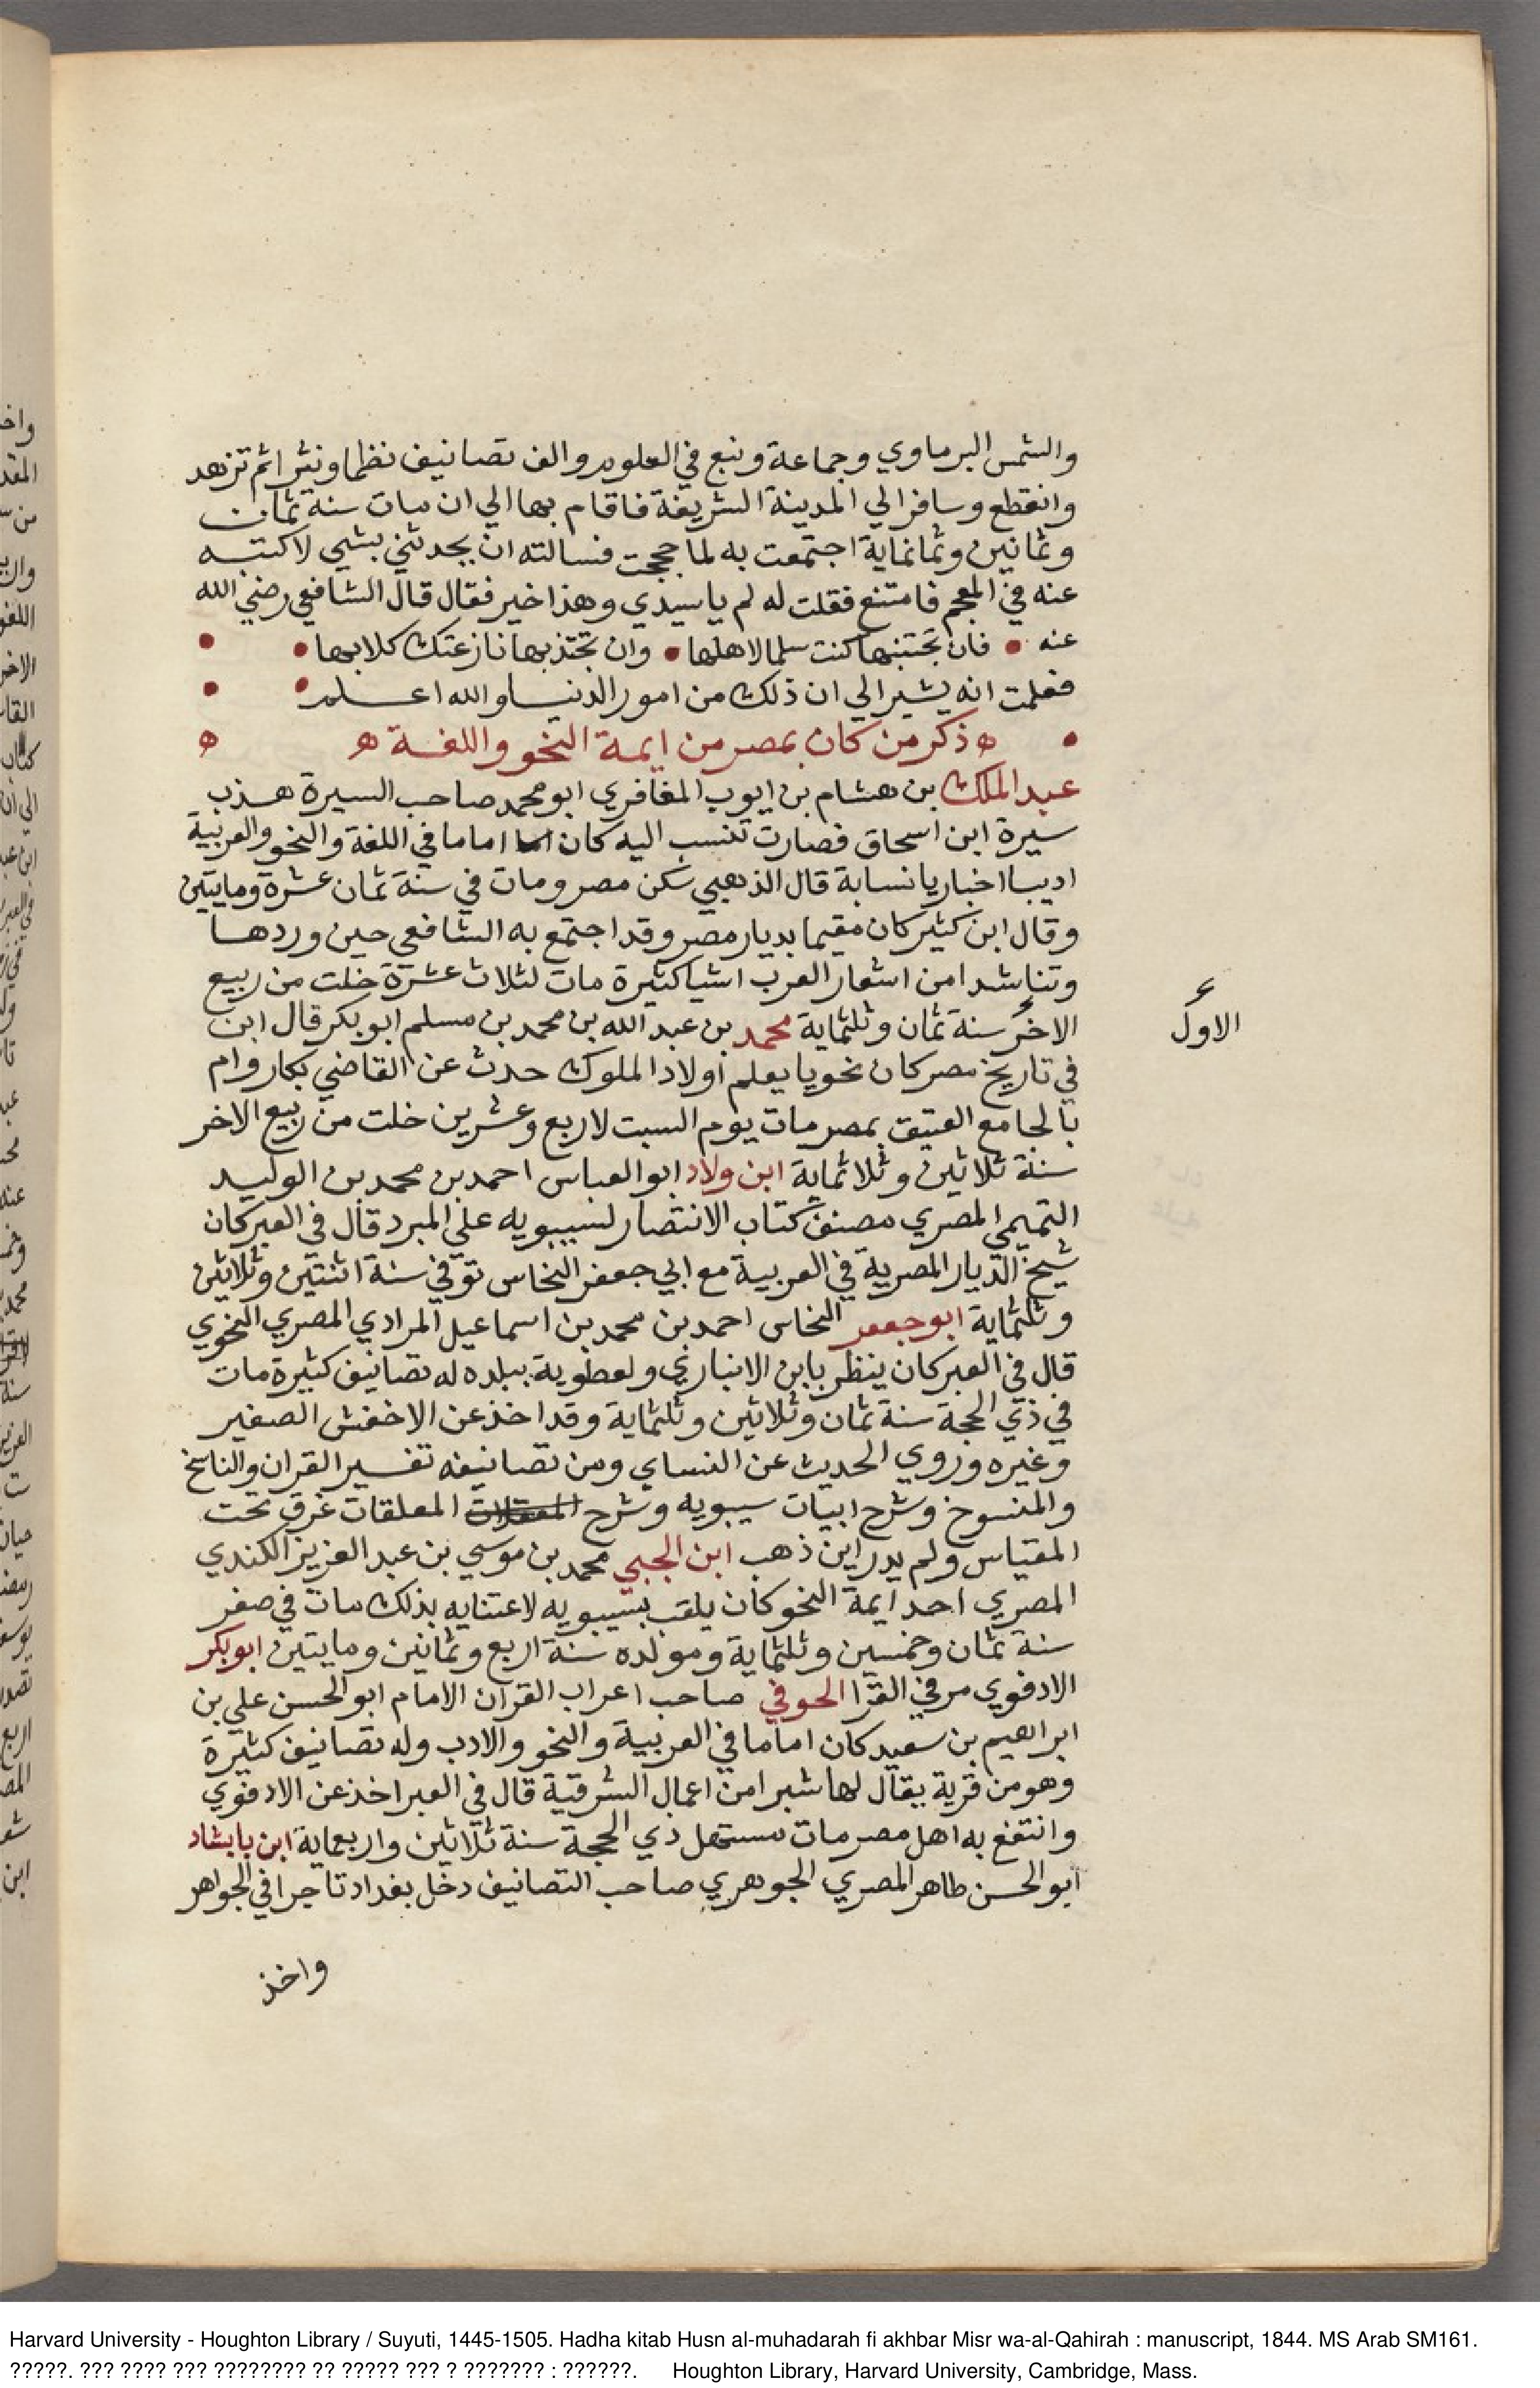 والشمس البرماوي وجماعة ونبع في العلوم والف تصانيف نظما ونثرا ثم تزهد
وانقطع وسافر الي المدينة الشريفة فاقام بها الي ان مات سنة ثمان
وثمانين وثمانماية اجتمعت به لما حججت فسالته ان يحدثني بشي لاكتبه
عنه في المعجم فامتنع فقلت له لم يا سيدي وهذا خير فقال قال الشافعي رضي الله
عنه • فان تجتنبها كنت سلما لاهلها • وان تجتذبها نازعتك كلابها • •
فعلمت انه يشير الي ان ذلك من امور الدنيا والله اعلم • •
• ه ذكر من كان بمصر من ايمة النحو واللغة ه ه
عبد الملك بن هشام بن ايوب المغافري ابو محمد صاحب السيرة هذب
سيرة ابن اسحاق فصارت تنسب اليه كان اماما في اللغة والنحو والعربية
اديبا اخباريا نسابة قال الذهبي سكن مصر ومات في سنة ثمان عشرة ومايتين
وقال ابن كثير كان مقيما بديار مصر وقد اجتمع به الشافعي حين وردها
وتناشدا من اشعار العرب اشيا كثيرة مات لثلاث عشرة خلت من ربيع
الاخر سنة ثمان وثلثماية محمد بن عبد الله بن محمد بن مسلم ابو بكر قال ابن
الاول
في تاريخ مصر كان نحويا يعلم اولاد الملوك حدث عن القاضي بكار وام
بالجامع العتيق بمصر مات يوم السبت لاربع وعشرين خلت من ربيع الاخر
سنة ثلاثين وثلاثماية ابن ولاد ابو العباس احمد بن محمد بن الوليد
التميمي المصري مصنف كتاب الانتصار لسيبويه علي المبرد قال في العبر كان
شيخ الديار المصرية في العربية مع ابي جعفر النحاس توفي سنة اثنتين وثلاثين
وثلثماية ابو جعفر النحاس احمد بن محمد بن اسماعيل المرادي المصري النحوي
قال في العبر كان ينظر بابن الانباري ولعطوية ببلده له تصانيف كثيرة مات
في ذي الحجة سنة ثمان وثلاثين وثلثماية وقد اخذ عن الاخفش الصغير
وغيره وروي الحديث عن النساي ومن تصانيفه تفسير القران والناسخ
والمنسوخ وشرح ابيات سيبويه وشرح المعلقات غرق تحت
المقياس ولم يدر اين ذهب ابن الجبي محمد بن موسي بن عبد العزيز الكندي
المصري احد ايمة النحو كان يلقب بسيبويه لاعتنايه بذلك مات في صفر
سنة ثمان وخمسين وثلثماية ومولده سنة اربع وثمانين ومايتين ابو بكر
الادفوي مر في القرا الحوفي صاحب اعراب القران الامام ابو الحسن علي بن
ابراهيم بن سعيد كان اماما في العربية والنحو والادب وله تصانيف كثيرة
وهو من قرية يقال لها شبرا من اعمال الشرقية قال في العبر اخذ عن الادفوي
وانتفع به اهل مصر مات مستهل ذي الحجة سنة ثلاثين واربعماية ابن بابشاد
ابو الحسن طاهر المصري الجوهري صاحب التصانيف دخل بغداد تاجرا في الجواهر
واخذ
Harvard University - Houghton Library / Suyuti, 1445-1505. Hadha kitab Husn al-muhadarah fi akhbar Misr wa-al-Qahirah : manuscript, 1844. MS Arab SM161.
?????. ??? ???? ??? ???????? ?? ????? ??? ? ??????? : ??????. Houghton Library, Harvard University, Cambridge, Mass.